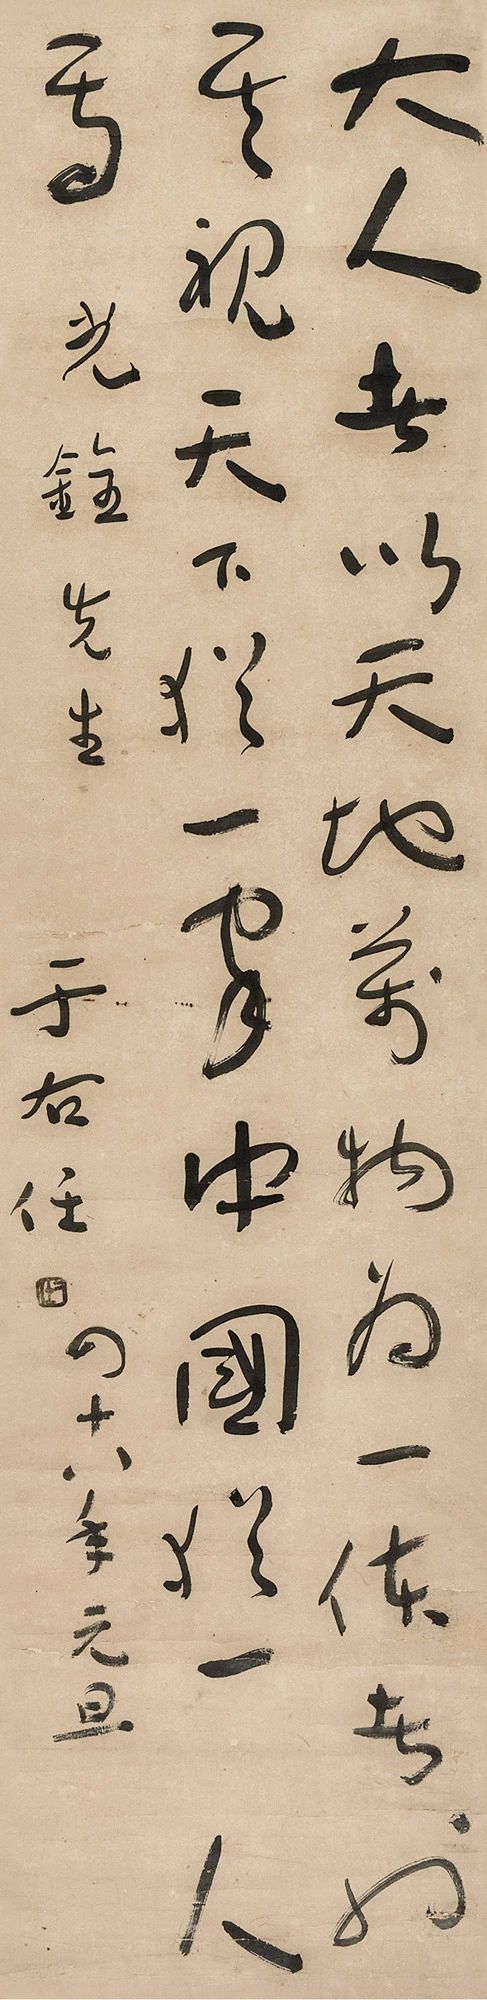 大人者以天地萬物為一体者也
其視天下猶一家中國猶一人
焉 光銓先生 于右任 四十八年元旦